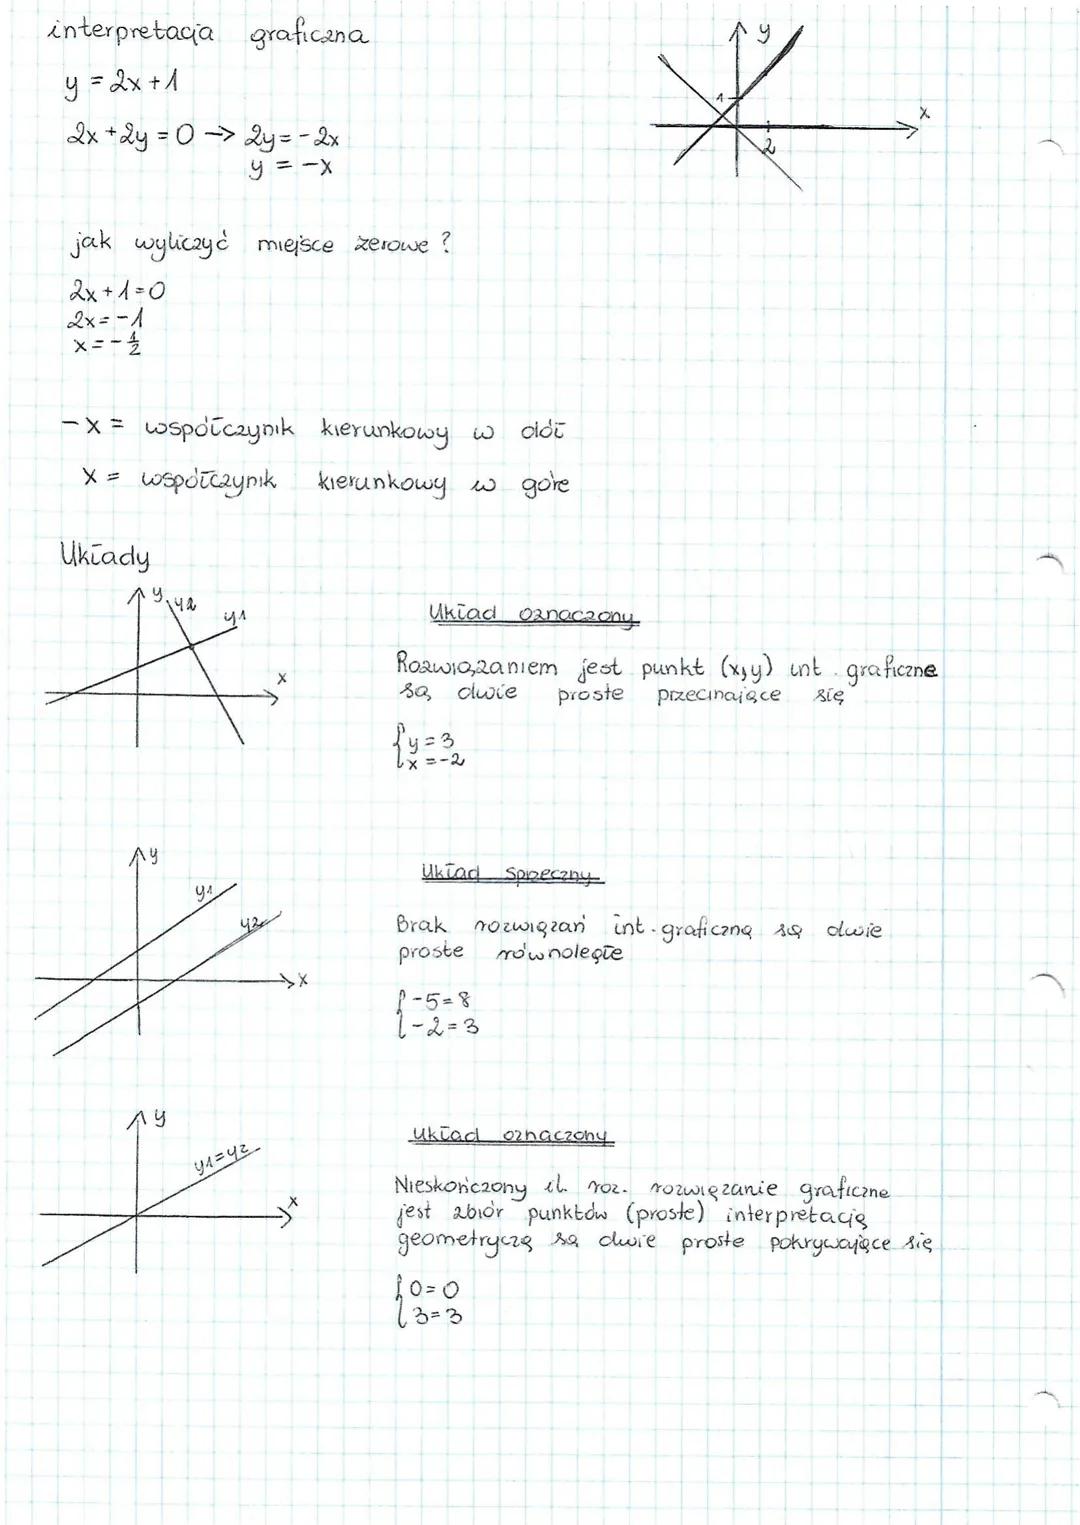 interpretacja graficzna
y = 2x + 1
2x + 2y = 0 → 2y = - 2x
y = - x
y
1
x
2
jak wyliczyć miejsce zerowe ?
2x + 1 = 0
2x = - 1
x = - 1/2
- x = współczynik kierunkowy w dół
x = współczynik kierunkowy w górę
Układy
y
y2
y1
x
Układ oznaczony
Rozwiązaniem jest punkt (x,y) int. graficzne
są dwie proste przecinające się
{ y = 3
x = -2
y
y1
y2
x
Układ sprzeczny
Brak rozwiązań int. graficzną są dwie
proste równoległe
{ -5 = 8
-2 = 3
y
y1=y2
x
Układ oznaczony
Nieskończony il. roz. rozwiązanie graficzne
jest zbiór punktów (proste) interpretacją
geometryczą są dwie proste pokrywające się
{ 0 = 0
3 = 3